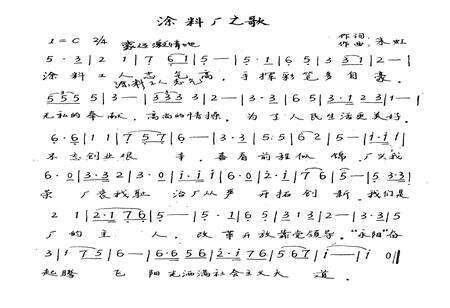 涂料厂之歌
1=C 2/4 豪迈激情地 作词:
作曲: 朱虹
5·3 | 2 1 | 7 6 1 | 5 — | 1·6 | 3·2 | 1 2 | 3 — | 3·3 | 6 5 | 3·31 | 2 — |
涂料工人志气高,手探彩笔多自豪
涂料工人志
555 5 | 3 — | 333 3 | 2 — | 3·3 | 6 5 | 3·1 2 3 | 1 — |
无私的奉献,高尚的情操,为了人民生活更美好.
6·6 | 1 1 | 7 5 7 | 6 — | 3·3 | 5·5 | 6 2 | 5 — | 1·1 |
不忘创业艰辛,喜看前程似锦,厂兴我
6·0 | 3·3 2 | 3·0 | 1·1 | 6·0 | 2·1 | 7 6 | 5 — | 5·33 |
荣厂衰我耻治厂从严开拓创新.我们是
2 1 | 2·1 7 6 | 5 — | 5·1 | 6 5 | 3 1 | 3·2 | 3 — | 3·3 | 5
厂的主人,改革开放靠党领导."永阳"奋
3 | 1 7 5 | 6 — | 6·6 5 6 | 2·1 7 6 | 5 6 7 | 1 — | 1 0 |
起腾飞阳光洒满社会主义大道.